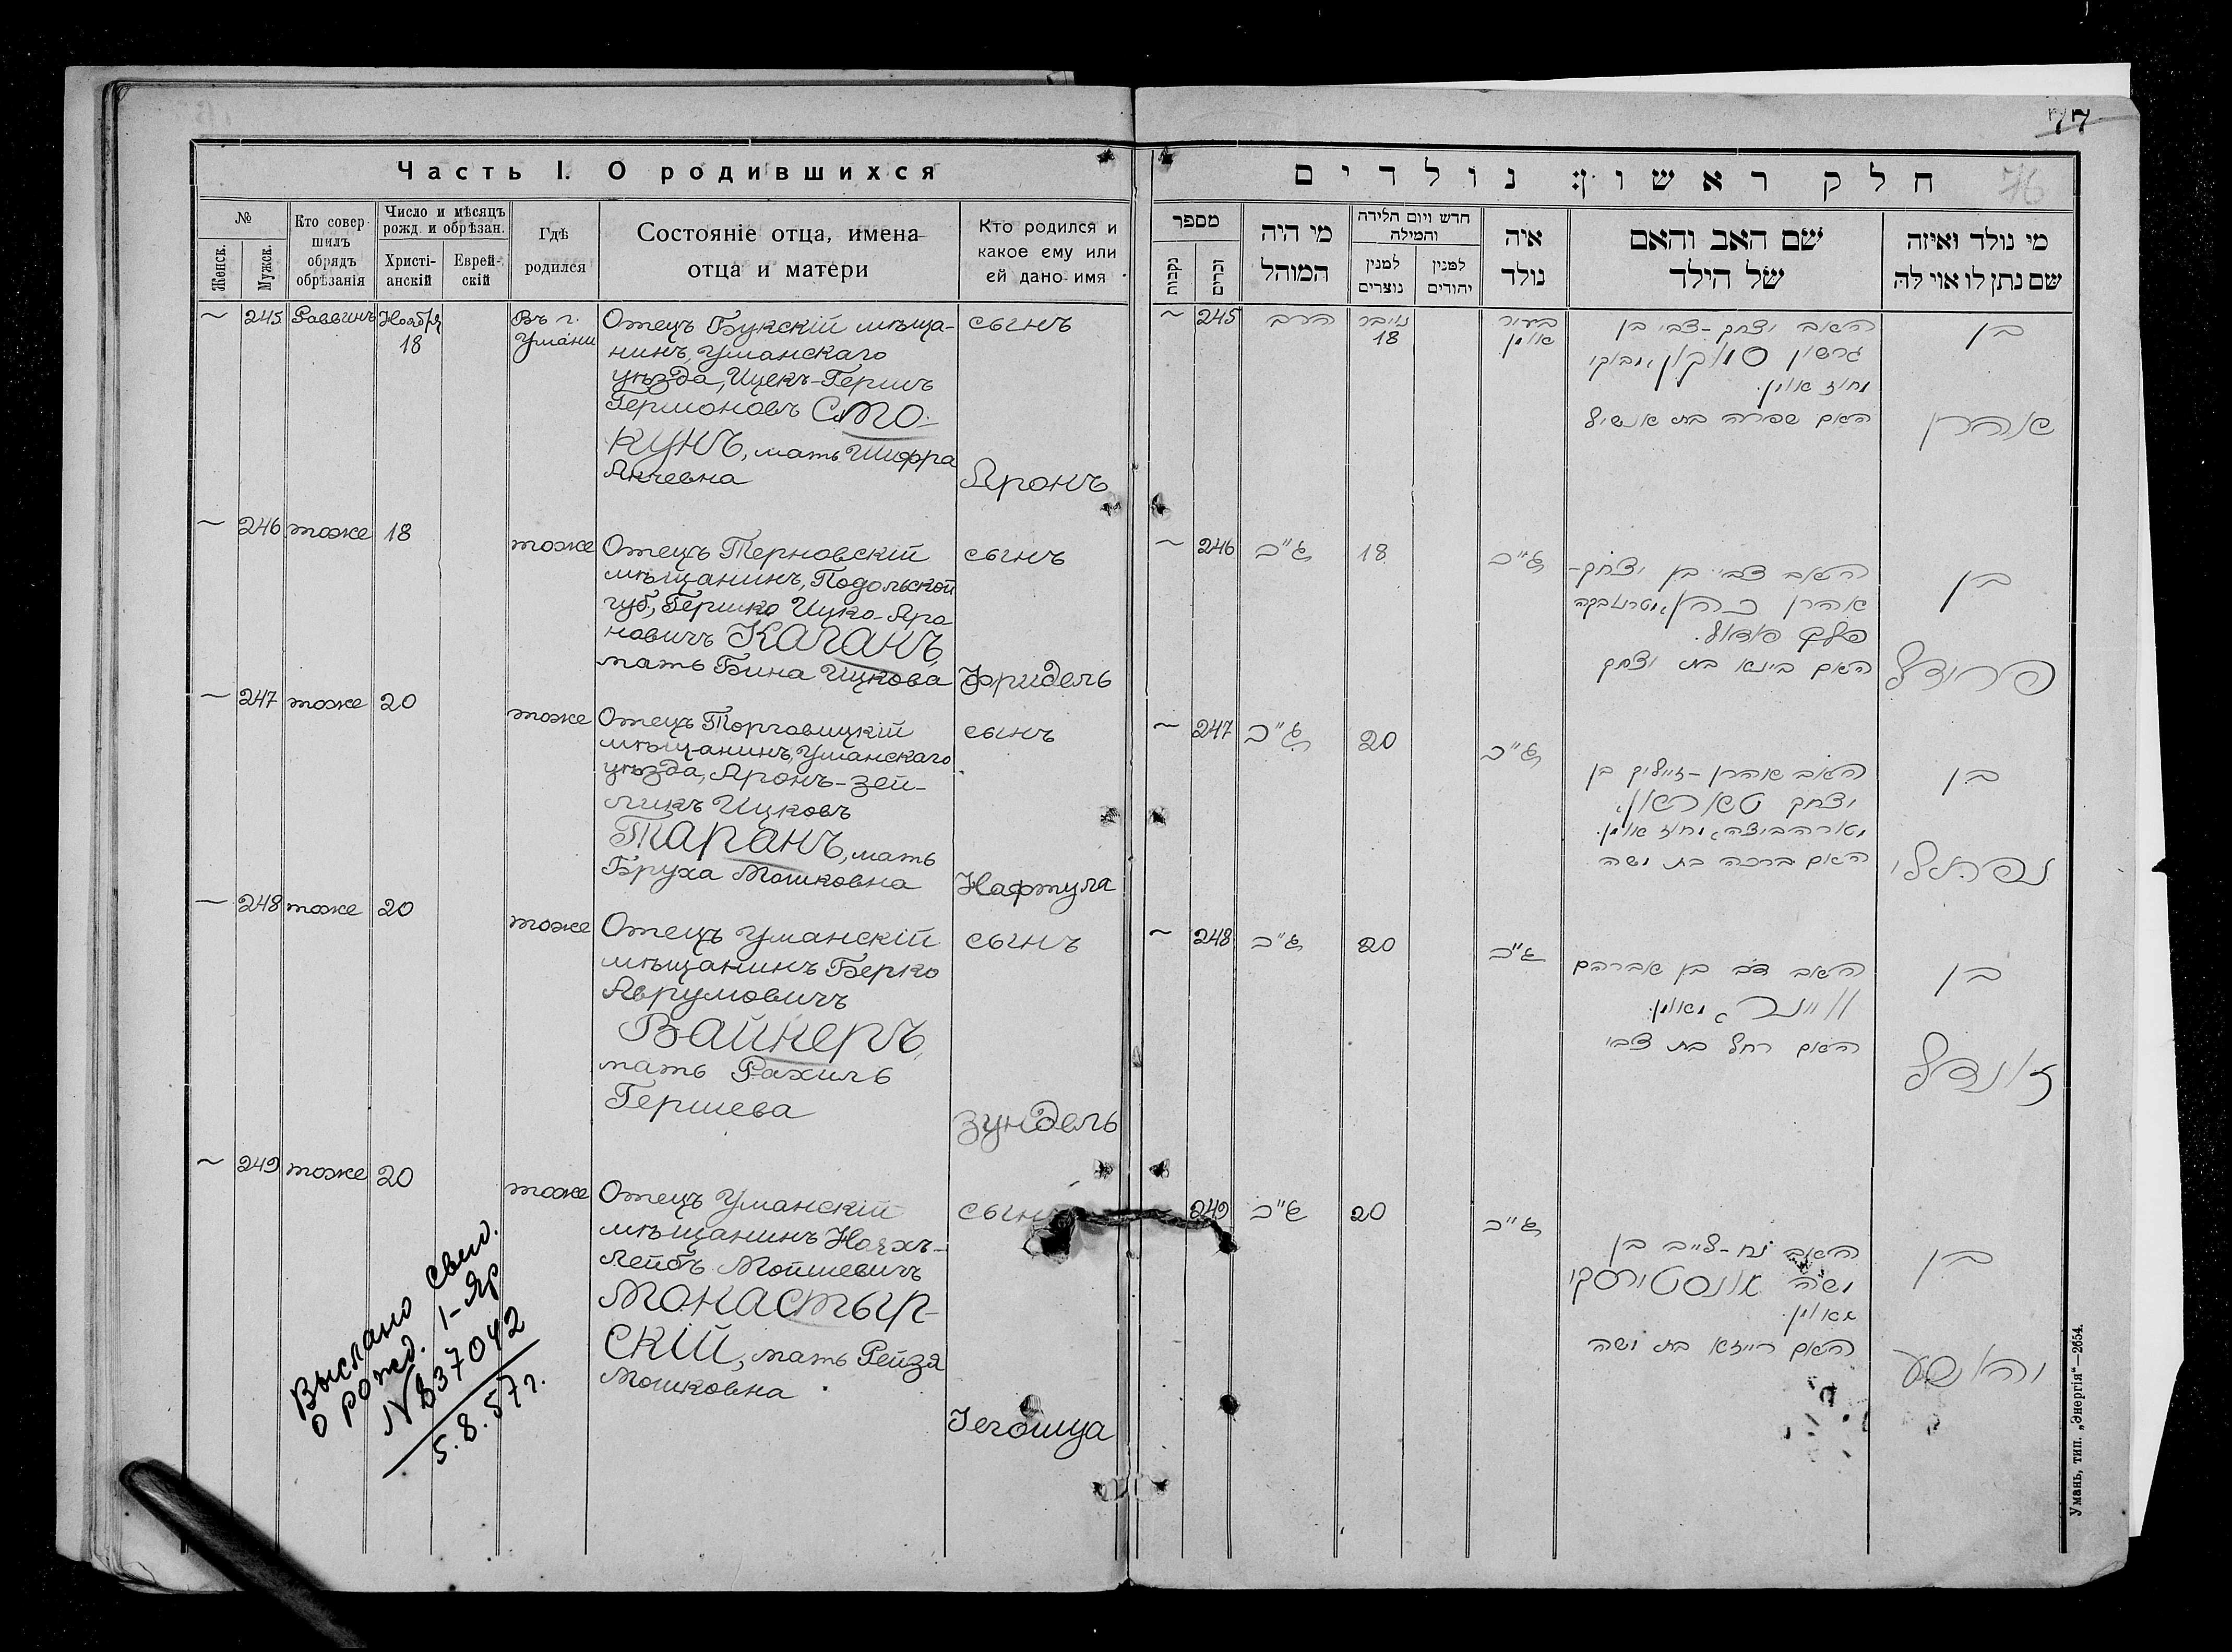 Часть I. О родившихся
№
Женск.
Мужск.
Кто совер-
шилъ
обрядъ
обрѣзанія
Число и мѣсяцъ
рожд. и обрѣзан.
Христі-
анскій
Еврей-
скій
Гдѣ
родился
Состояніе отца, имена
отца и матери
Кто родился и
какое ему или
ей дано имя
~ 245 Раввинъ Ноября
18
Въ г.
Умани
Отецъ Букскій мѣща-
нинъ, Уманскаго
уѣзда, Ицекъ-Гершъ
Гершоновъ Сто-
кунъ, мать Шифра
Анчевна
сынъ
Аронъ
~ 246 тоже 18
тоже
Отецъ Терновскій
мѣщанинъ, Подольской
губ., Гершко Ицко-Аро
новичъ Каганъ,
мать Бина Ицкова
сынъ
Фридель
~ 247 тоже 20
тоже
Отецъ Торговицкій
мѣщанинъ, Уманскаго
уѣзда, Аронъ-Зей-
ликъ Ицковъ
Таранъ, мать
Бруха Мошковна
сынъ
Нафтула
~ 248 тоже 20
тоже
Отецъ Уманскій
мѣщанинъ Берко
Аврумовичъ
Вайнеръ,
мать Рахиль
Гершева
сынъ
Зундель
~ 249 тоже 20
тоже
Отецъ Уманскій
мѣщанинъ Ноахъ-
Лейбъ Мойшевичъ
Монастыр-
скій, мать Рейзя
Мошковна
сынъ
Іегошуа
Выслано свид.
о рожд. I-ЯР
№ 637042
5.8.57 г.
77
76
חלק ראשון: נולדים
מספר
נקבות
זכרים
מי היה
המוהל
חדש ויום הלידה
והמילה
למנין
נוצרים
למנין
יהודים
איה
נולד
שם האב והאם
של הילד
מי נולד ואיזה
שם נתן לו אוי לה
~ 245 הרב
18
האב יצחק-צבי בן
גרשון
האם שפרה בת אנשיל
בן
אהרן
~ 246 18
האב צבי בן יצחק-
אהרן כהן
האם בינא בת יצחק
בן
פרידל
~ 247 20
האב אהרן-זייליק בן
יצחק טאראן
האם ברכה בת משה
בן
נפתלי
~ 248 20
האב דב בן אברהם
ווינר
האם רחל בת צבי
בן
זונדל
249 20
האב נח-לייב בן
משה מונסטירסקי
מאומן.
האם רייזא בת משה
בן
יהושע
Умань, тип. „Энергія“—2654.